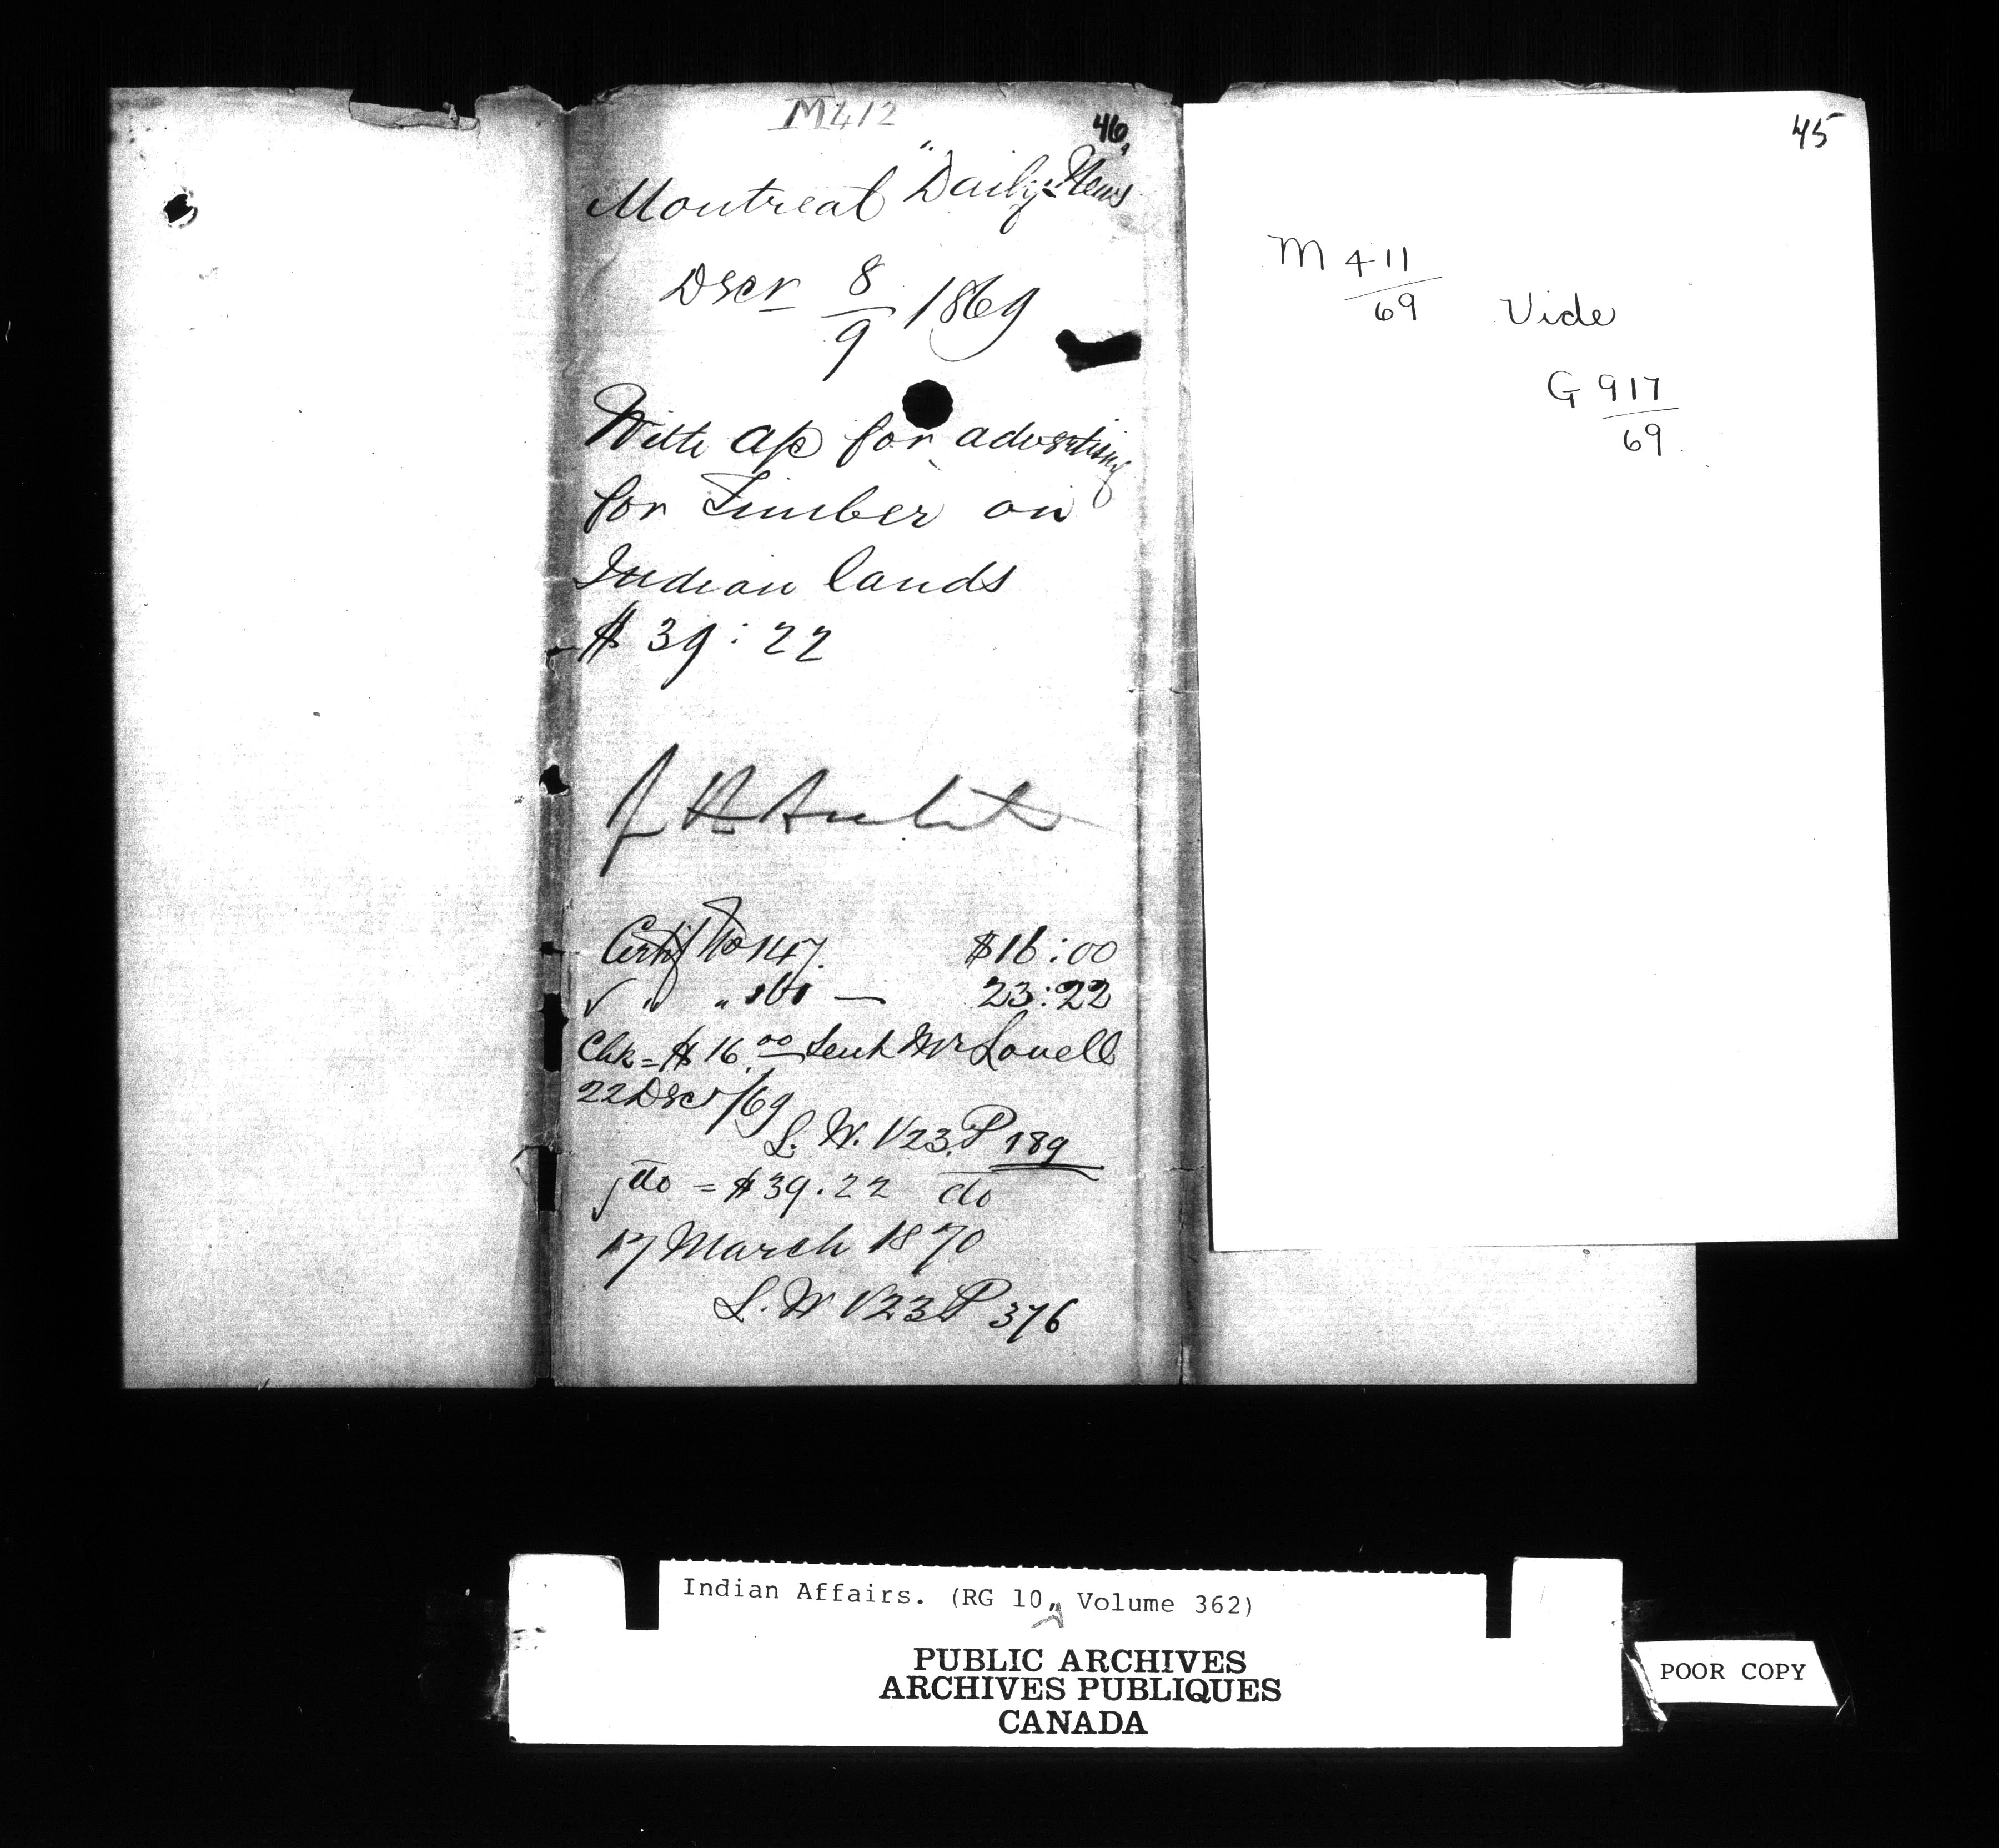 M412
46
Montreal "Daily News
Decr 8/9 1869
With a/c for advertising
for Timber on
Indian lands
$39:22
J R
Certif No 147. $16:00
✓ " " — 23:22
Chk = $16.00 Sent Mr Lovell
22 Decr/69
L. W. V23. P 189
do = $39.22 do
17 March 1870
L. W V23 P 376
45
M 411/69 Vide
G 917/69
Indian Affairs. (RG 10, Volume 362)
PUBLIC ARCHIVES
ARCHIVES PUBLIQUES
CANADA
POOR COPY